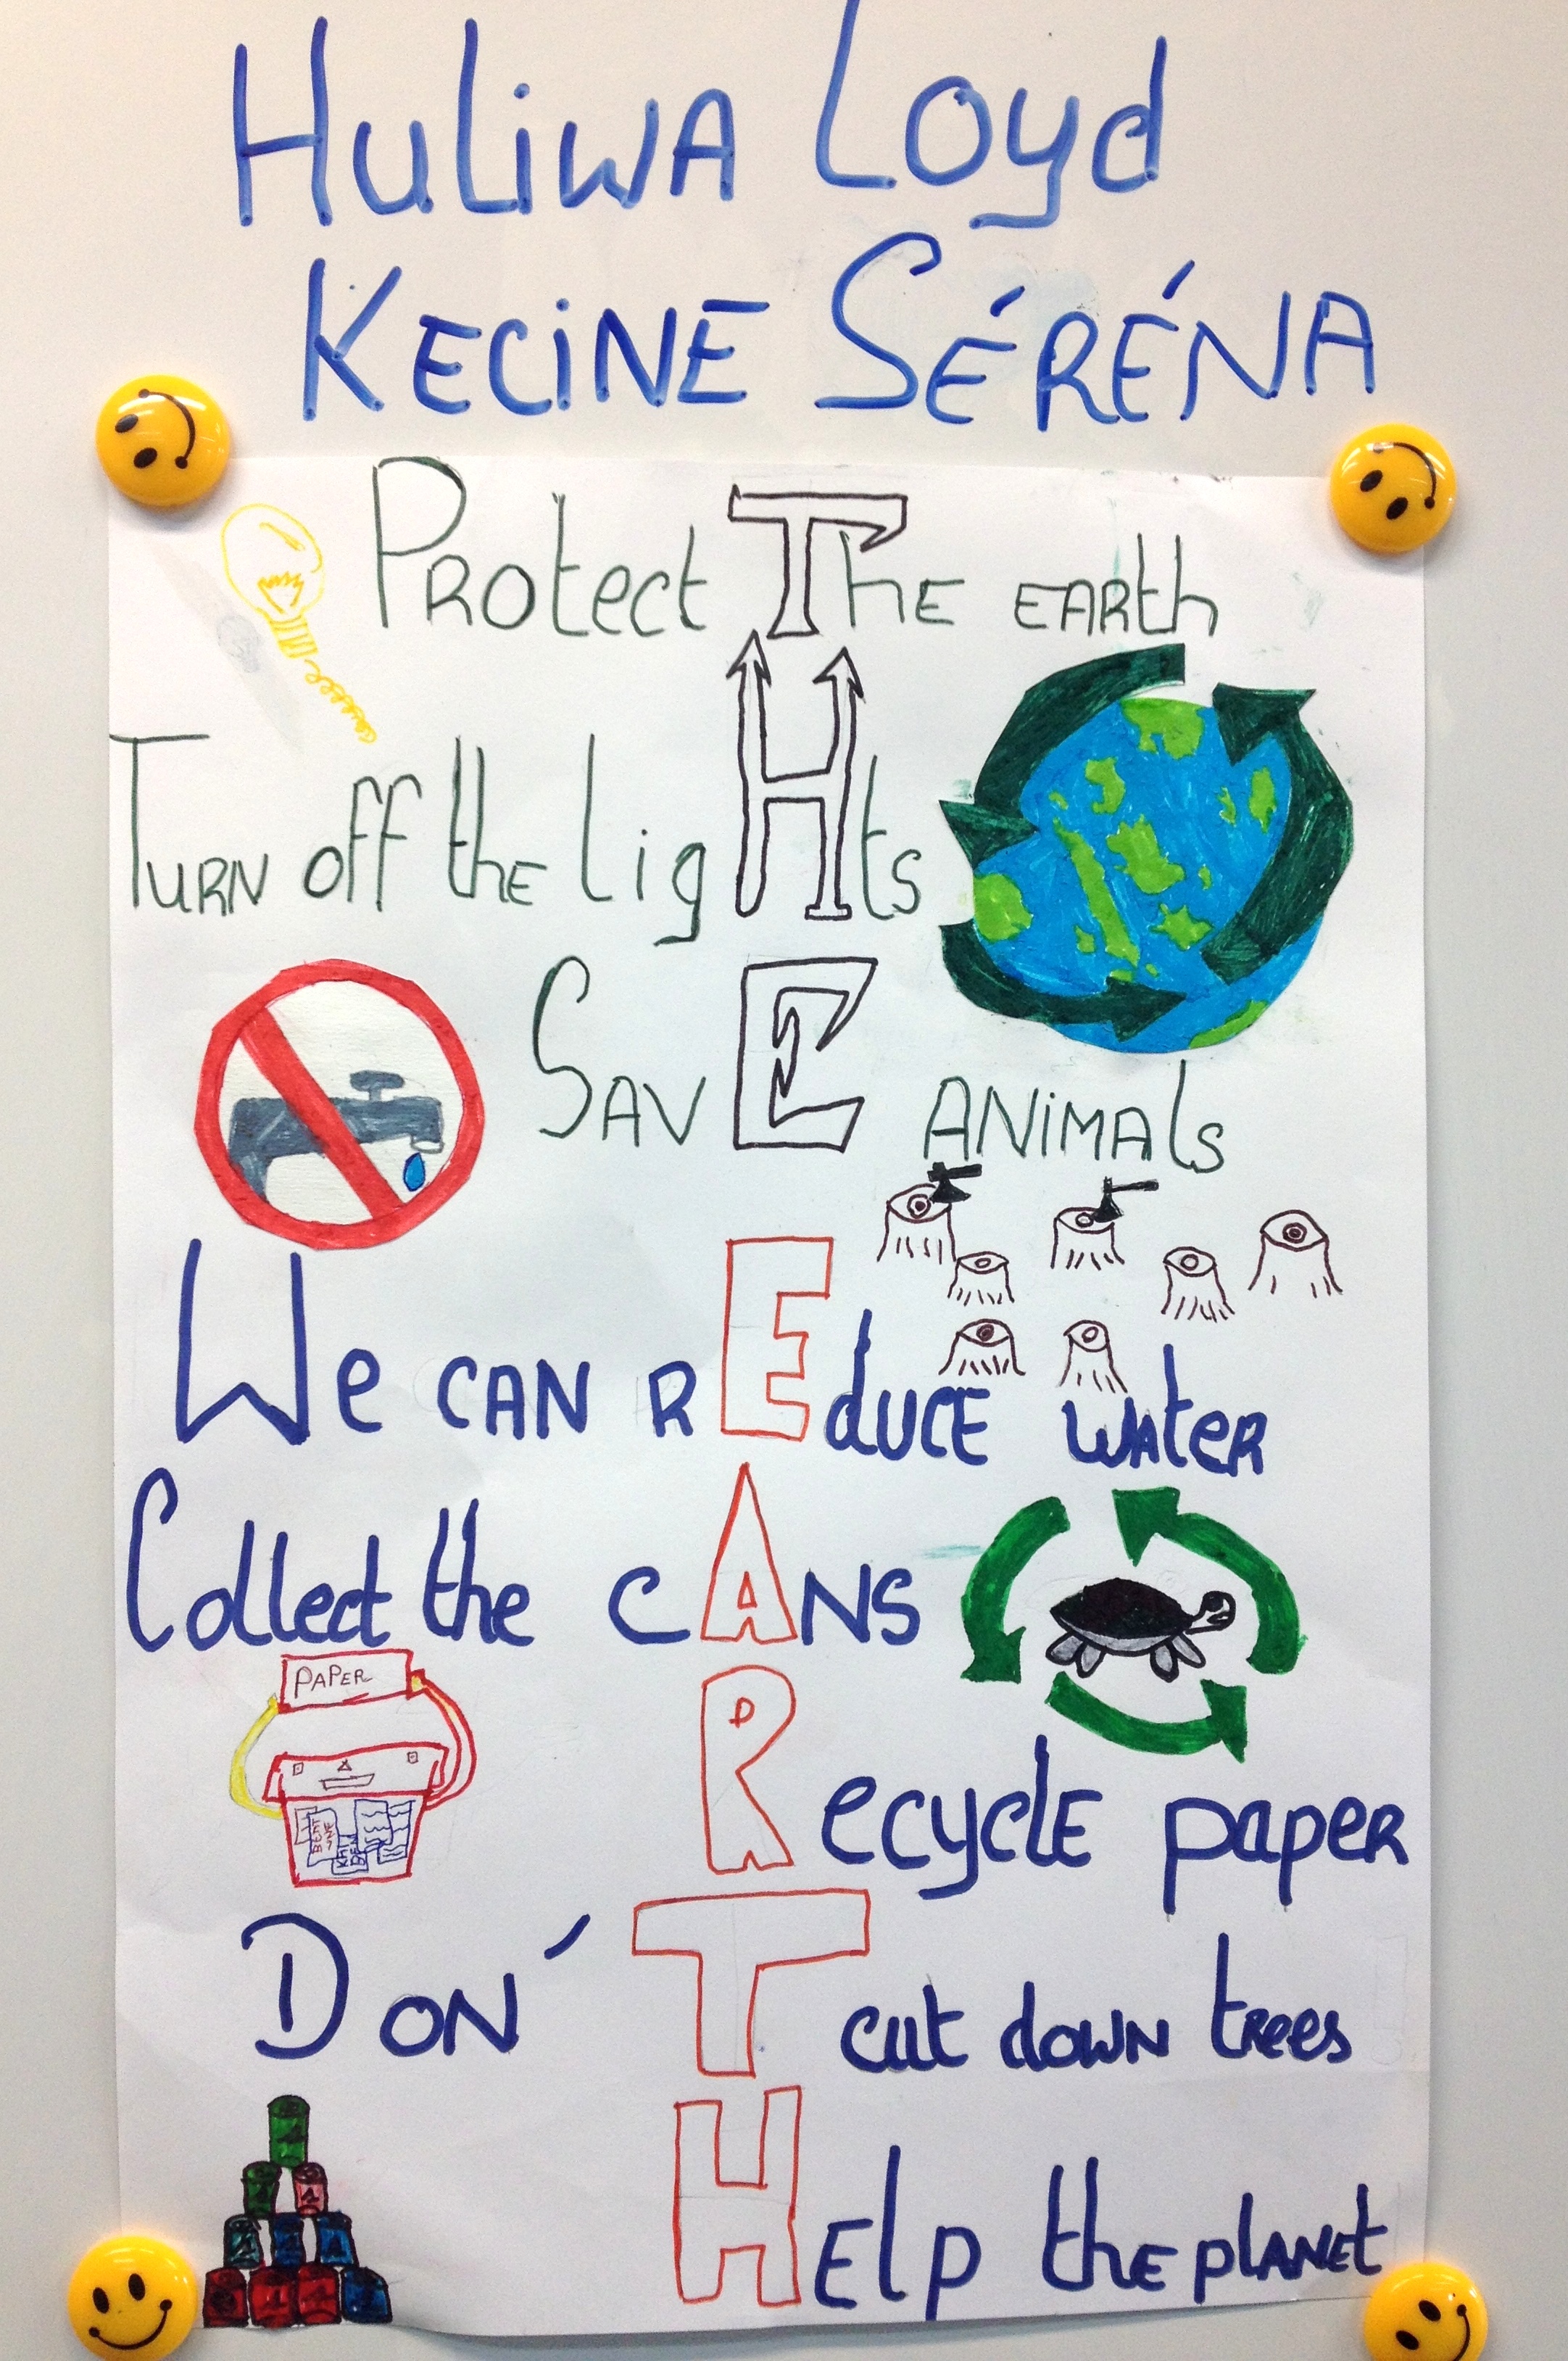 HuliwA Loyd
KECiNE SÉRÉNA
PROtect The EARth
TURN off thE ligHts
SAVE ANiMAls
We CAN REdUCE WAteR
Collect the CANS
PAPER
RecyclE papeR
DON'T cut dOWN tRees
HElp thE plANEt